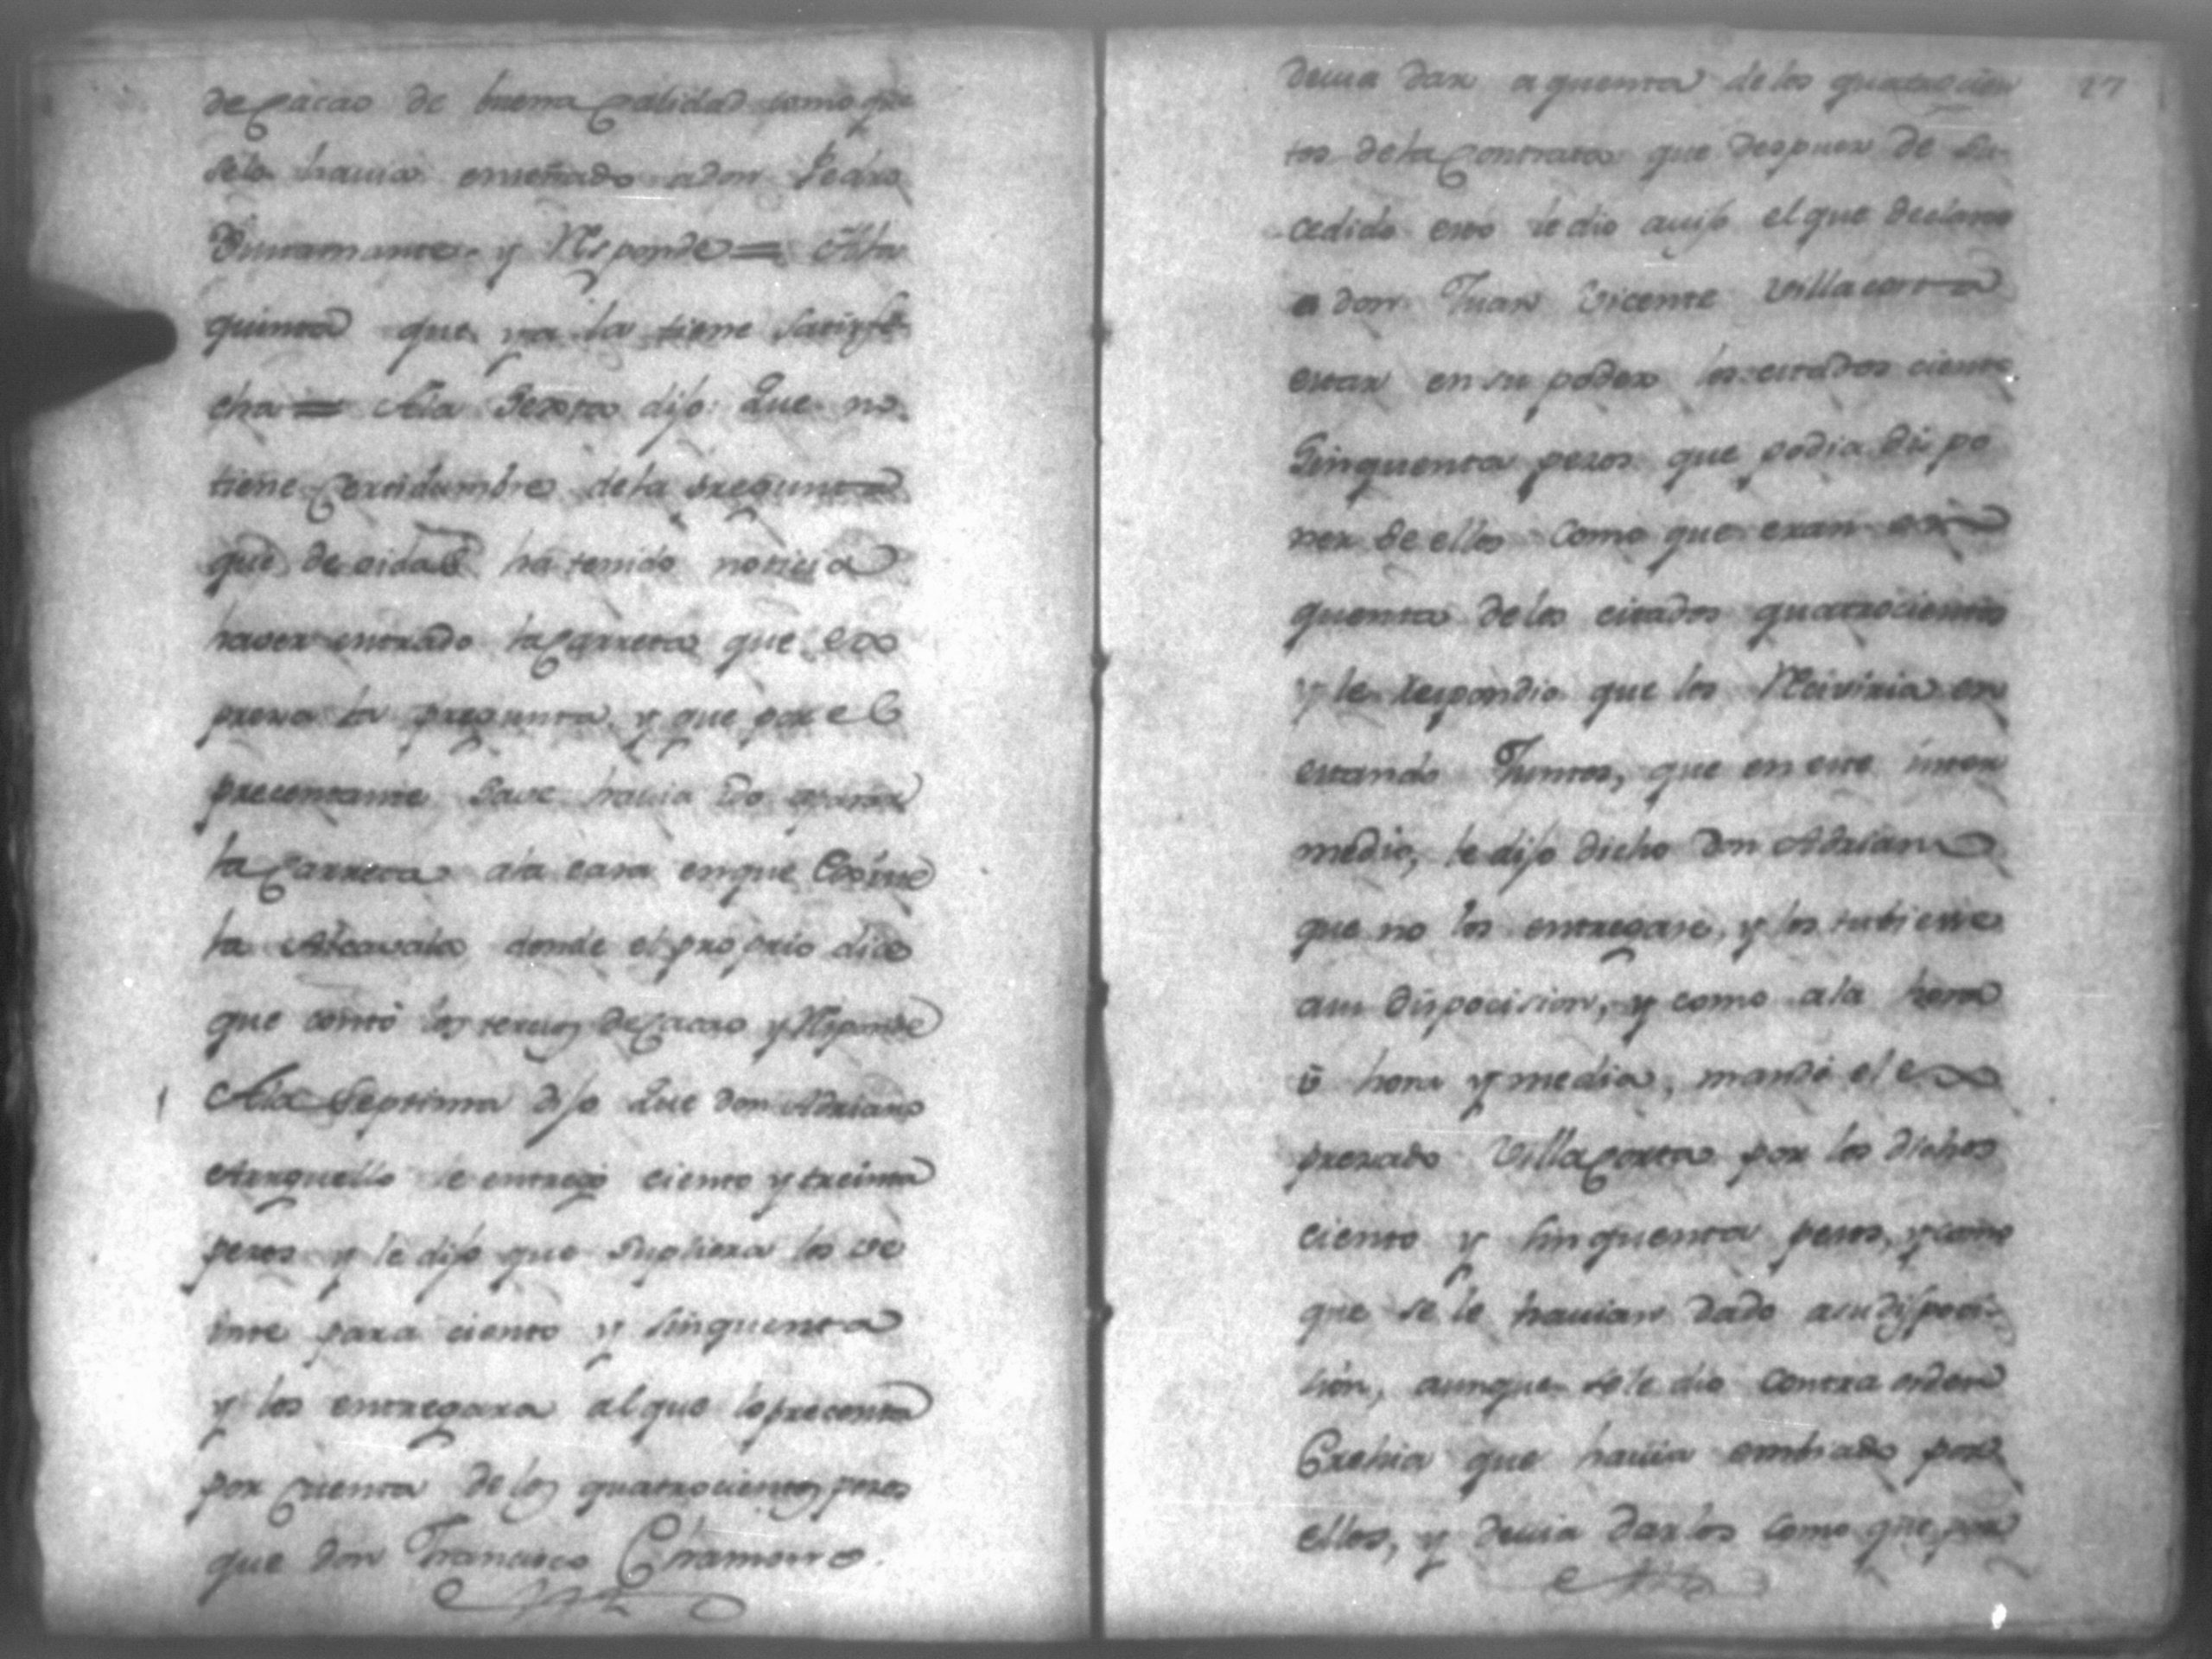 de Cacao de buena Calidad como que
selo havia enseñado adon Pedro
y Responde = Ala
quinta que ya la tiene satisfe
cha = Ala Sexta dijo: Que no
tiene Certidumbre dela pregunta
que de oidas ha tenido noticia
haver entrado la Carreta que ex
presa la pregunta, y que por el
precentante save havia ido aparar
la Carreta ala casa enque Corre
la Alcavala donde el proprio dice
que contó los tercios de Cacao y Responde
Ala Septima dijo Que don Adriano
Arguello le entregó ciento y treinta
pesos y le dijo que supliera los ve
inte para ciento y sinquenta
y los entregara al que lo precenta
por Cuenta de los quatrocientos pesos
que don Francisco Chamorro.
27
devia dar a quenta de los quatrocien
tos dela Contrata que despues de su-
cedido esto le dio aviso el que declara
a don Juan Vicente Villacorta
estar en su poder los citados ciento
Sinquenta pesos que podia dispo
ner de ellos como que eran en
quenta delos citados quatrocientos
y le respondio que los Reciviria en
estando Juntos, que en este inter
medio, le dijo dicho Don Adriano
que no los entregase, y los tubiesse
asu dispocision, y como ala hora
ù hora y media, mandó el ex
presado Villa Corta por los dichos
ciento y sinquenta pesos, y como
que se le havian dado asu dispoci-
sion, aunque se le dio contra orden
Crehia que havia embiado por
ellos, y devia darlos como que por